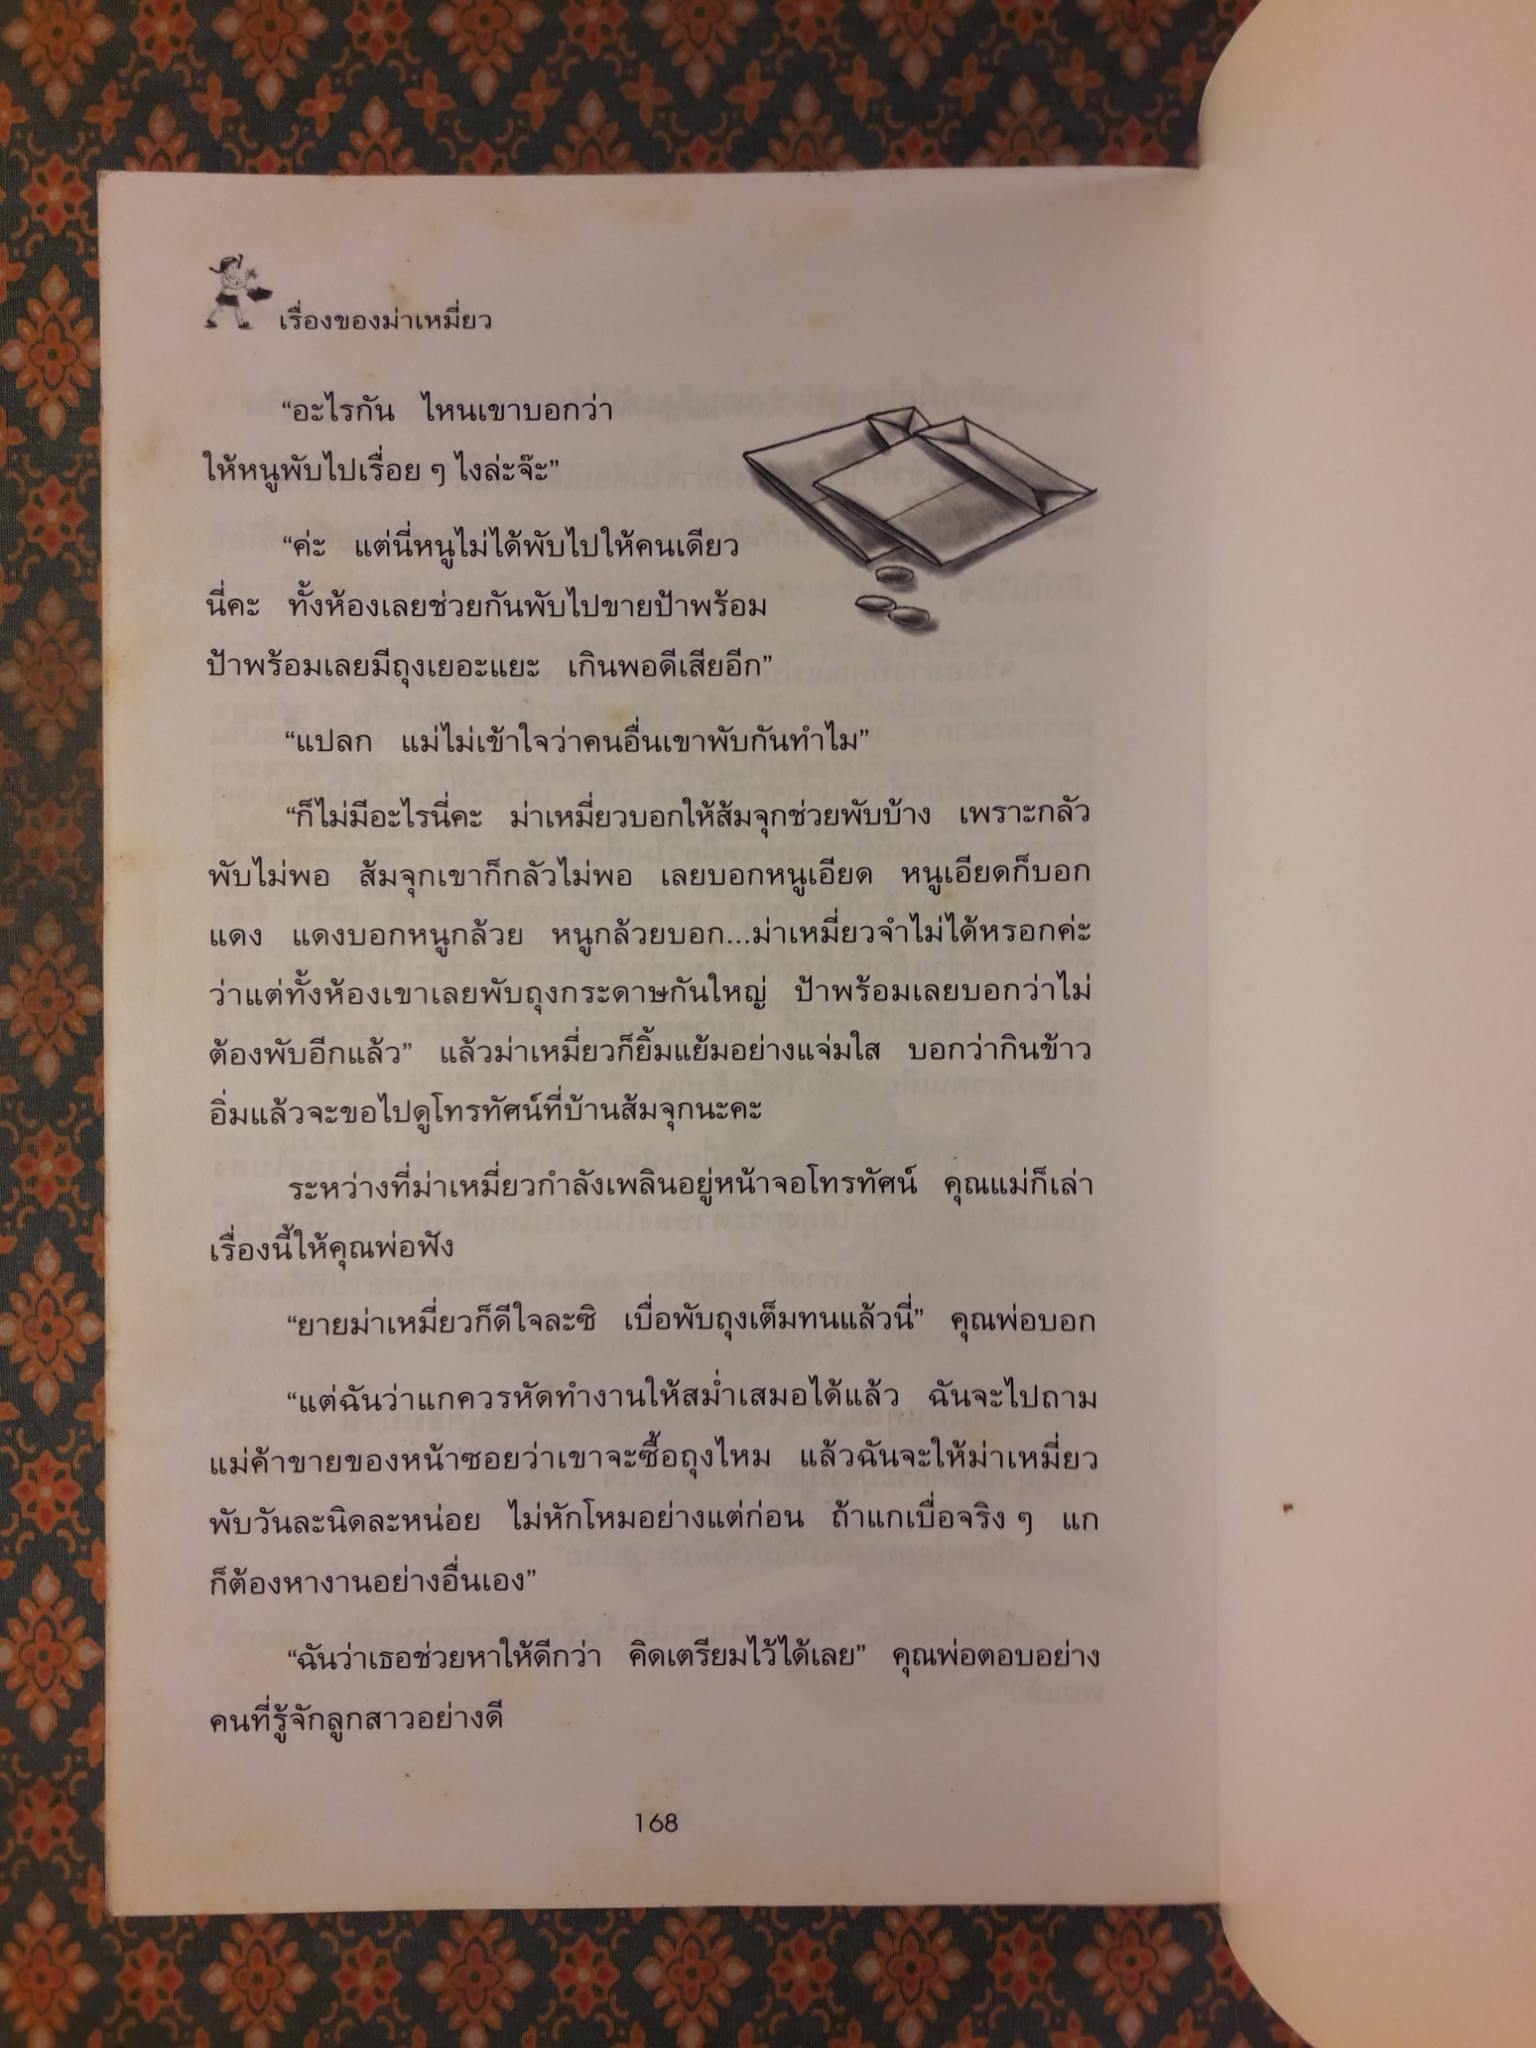 เรื่องของม่าเหมี่ยว
“อะไรกัน ไหนเขาบอกว่า
ให้หนูพับไปเรื่อย ๆ ไงล่ะจ๊ะ”
“ค่ะ แต่นี่หนูไม่ได้พับไปให้คนเดียว
นี่คะ ทั้งห้องเลยช่วยกันพับไปขายป้าพร้อม
ป้าพร้อมเลยมีถุงเยอะแยะ เกินพอดีเสียอีก”
“แปลก แม่ไม่เข้าใจว่าคนอื่นเขาพับกันทำไม”
“ก็ไม่มีอะไรนี่คะ ม่าเหมี่ยวบอกให้ส้มจุกช่วยพับบ้าง เพราะกลัว
พับไม่พอ ส้มจุกเขาก็กลัวไม่พอ เลยบอกหนูเอียด หนูเอียดก็บอก
แดง แดงบอกหนูกล้วย หนูกล้วยบอก...ม่าเหมี่ยวจำไม่ได้หรอกค่ะ
ว่าแต่ทั้งห้องเขาเลยพับถุงกระดาษกันใหญ่ ป้าพร้อมเลยบอกว่าไม่
ต้องพับอีกแล้ว” แล้วม่าเหมี่ยวก็ยิ้มแย้มอย่างแจ่มใส บอกว่ากินข้าว
อิ่มแล้วจะขอไปดูโทรทัศน์ที่บ้านส้มจุกนะคะ
ระหว่างที่ม่าเหมี่ยวกำลังเพลินอยู่หน้าจอโทรทัศน์ คุณแม่ก็เล่า
เรื่องนี้ให้คุณพ่อฟัง
“ยายม่าเหมี่ยวก็ดีใจละซิ เบื่อพับถุงเต็มทนแล้วนี่” คุณพ่อบอก
“แต่ฉันว่าแกควรหัดทำงานให้สม่ำเสมอได้แล้ว ฉันจะไปถาม
แม่ค้าขายของหน้าซอยว่าเขาจะซื้อถุงไหม แล้วฉันจะให้ม่าเหมี่ยว
พับวันละนิดละหน่อย ไม่หักโหมอย่างแต่ก่อน ถ้าแกเบื่อจริง ๆ แก
ก็ต้องหางานอย่างอื่นเอง”
“ฉันว่าเธอช่วยหาให้ดีกว่า คิดเตรียมไว้ได้เลย” คุณพ่อตอบอย่าง
คนที่รู้จักลูกสาวอย่างดี
168